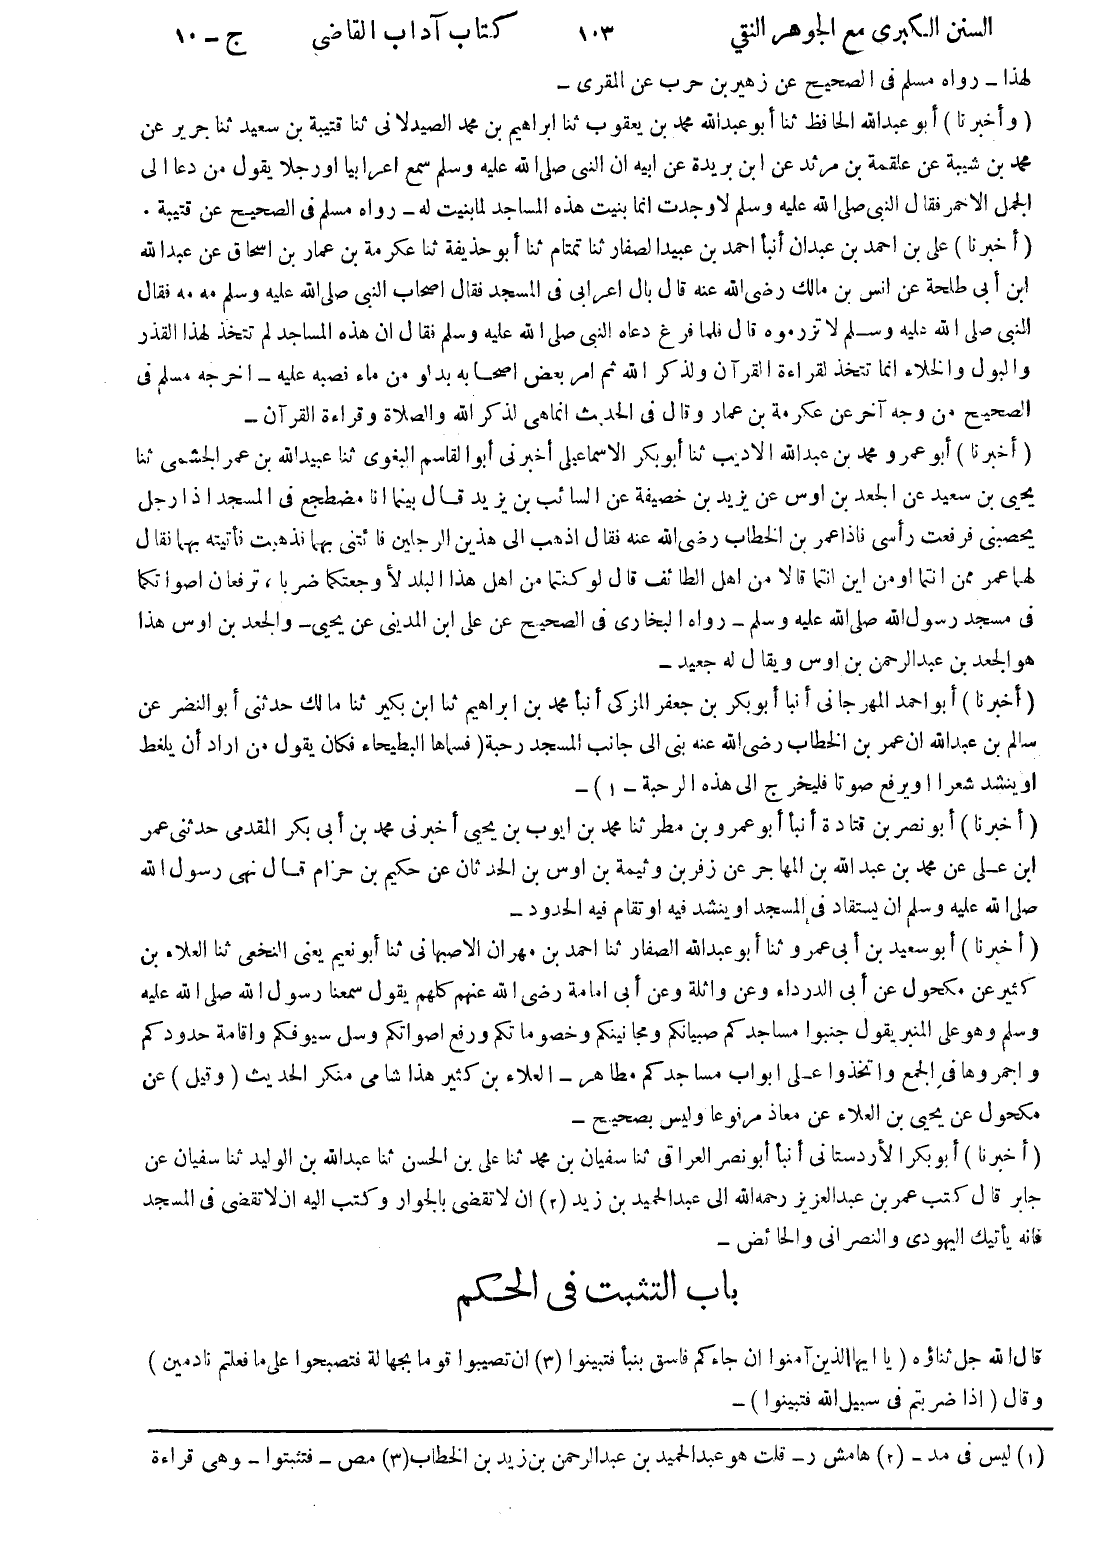 السنن الكبرى مع الجوهر النقي ١٠٣ كتاب آداب القاضى ج ـ ١٠
لهذا ـ رواه مسلم فى الصحيح عن زهير بن حرب عن المقرى ـ
( وأخبرنا ) أبو عبدالله الحافظ ثنا أبو عبدالله محمد بن يعقوب ثنا ابراهيم بن محمد الصيدلانى ثنا قتيبة بن سعيد ثنا جرير عن
محمد بن شيبة عن علقمة بن مرثد عن ابن بريدة عن ابيه ان النبى صلى الله عليه وسلم سمع اعرابيا اورجلا يقول من دعا الى
الجمل الاحمر فقال النبى صلى الله عليه وسلم لاوجدت انما بنيت هذه المساجد لما بنيت له ـ رواه مسلم فى الصحيح عن قتيبة .
( أخبرنا ) على بن احمد بن عبدان أنبأ احمد بن عبيدالصفار ثنا تمتام ثنا أبو حذيفة ثنا عكرمة بن عمار بن اسحاق عن عبدالله
ابن أبى طلحة عن انس بن مالك رضى الله عنه قال بال اعرابى فى المسجد فقال اصحاب النبى صلى الله عليه وسلم مه مه فقال
النبى صلى الله عليه وسلم لا تزرموه قال فلما فرغ دعاه النبى صلى الله عليه وسلم فقال ان هذه المساجد لم تتخذ لهذا القذر
والبول والخلاء انما تتخذ لقراءة القرآن ولذكر الله ثم امر بعض اصحابه بدلو من ماء فصبه عليه ـ اخرجه مسلم فى
الصحيح من وجه آخر عن عكرمة بن عمار وقال فى الحديث انماهى لذكر الله والصلاة وقراءة القرآن ـ
( أخبرنا ) أبو عمرو محمد بن عبدالله الاديب ثنا أبو بكر الاسماعيلى أخبرنى أبوالقاسم البغوى ثنا عبيدالله بن عمر الجشمى ثنا
يحيى بن سعيد عن الجعد بن اوس عن يزيد بن خصيفة عن السائب بن يزيد قال بينما انا مضطجع فى المسجد اذا رجل
يحصبنى فرفعت رأسى فاذاعمر بن الخطاب رضى الله عنه فقال اذهب الى هذين الرجلين فائتنى بهما فذهبت فأتيته بهما فقال
لهما عمر ممن انتما اومن اين انتما قالا من اهل الطائف قال لو كنتما من اهل هذا البلد لأوجعتكما ضربا ، ترفعان اصواتكما
فى مسجد رسول الله صلى الله عليه وسلم ـ رواه البخارى فى الصحيح عن على ابن المدينى عن يحيى ـ والجعد بن اوس هذا
هوالجعد بن عبدالرحمن بن اوس ويقال له جعيد ـ
( أخبرنا ) أبو احمد المهرجانى أنبأ أبو بكر بن جعفر المزكى أنبأ محمد بن ابراهيم ثنا ابن بكير ثنا مالك حدثنى أبو النضر عن
سالم بن عبدالله ان عمر بن الخطاب رضى الله عنه بنى الى جانب المسجد رحبة ( فسماها البطيحاء فكان يقول من اراد أن يلغط
اوينشد شعرا اويرفع صوتا فليخرج الى هذه الرحبة ـ ١ ) ـ
( أخبرنا ) أبو نصر بن قتادة أنبأ أبو عمرو بن مطر ثنا محمد بن ايوب بن يحيى أخبرنى محمد بن أبى بكر المقدمى حدثنى عمر
ابن على عن محمد بن عبد الله بن المهاجر عن زفر بن وثيمة بن اوس بن الحدثان عن حكيم بن حزام قال نهى رسول الله
صلى الله عليه وسلم ان يستقاد فى المسجد اوينشد فيه اوتقام فيه الحدود ـ
( أخبرنا ) أبو سعيد بن أبى عمرو ثنا أبو عبدالله الصفار ثنا احمد بن مهران الاصبهانى ثنا أبو نعيم يعنى النخعى ثنا العلاء بن
كثير عن مكحول عن أبى الدرداء وعن واثلة وعن أبى امامة رضى الله عنهم كلهم يقول سمعنا رسول الله صلى الله عليه
وسلم وهو على المنبر يقول جنبوا مساجدكم صبيانكم ومجانينكم وخصوماتكم ورفع اصواتكم وسل سيوفكم واقامة حدودكم
واجمروها فى الجمع واتخذوا على ابواب مساجدكم مطاهر ـ العلاء بن كثير هذا شامى منكر الحديث ( وقيل ) عن
مكحول عن يحيى بن العلاء عن معاذ مرفوعا وليس بصحيح ـ
( أخبرنا ) أبو بكر الأردستانى أنبأ أبو نصر العراقى ثنا سفيان بن محمد ثنا على بن الحسن ثنا عبدالله بن الوليد ثنا سفيان عن
جابر قال كتب عمر بن عبدالعزيز رحمه الله الى عبدالحميد بن زيد (٢) ان لا تقضى بالجوار وكتب اليه ان لا تقضى فى المسجد
فانه يأتيك اليهودى والنصرانى والحائض ـ
باب التثبت فى الحكم
قال الله جل ثناؤه ( يا ايها الذين آمنوا ان جاءكم فاسق بنبأ فتبينوا (٣) ان تصيبوا قوما بجهالة فتصبحوا على ما فعلتم نادمين )
وقال ( اذا ضربتم فى سبيل الله فتبينوا ) ـ
(١) ليس فى مد ـ (٢) هامش ر ـ قلت هو عبدالحميد بن عبدالرحمن بن زيد بن الخطاب (٣) مص ـ فتثبتوا ـ وهى قراءة